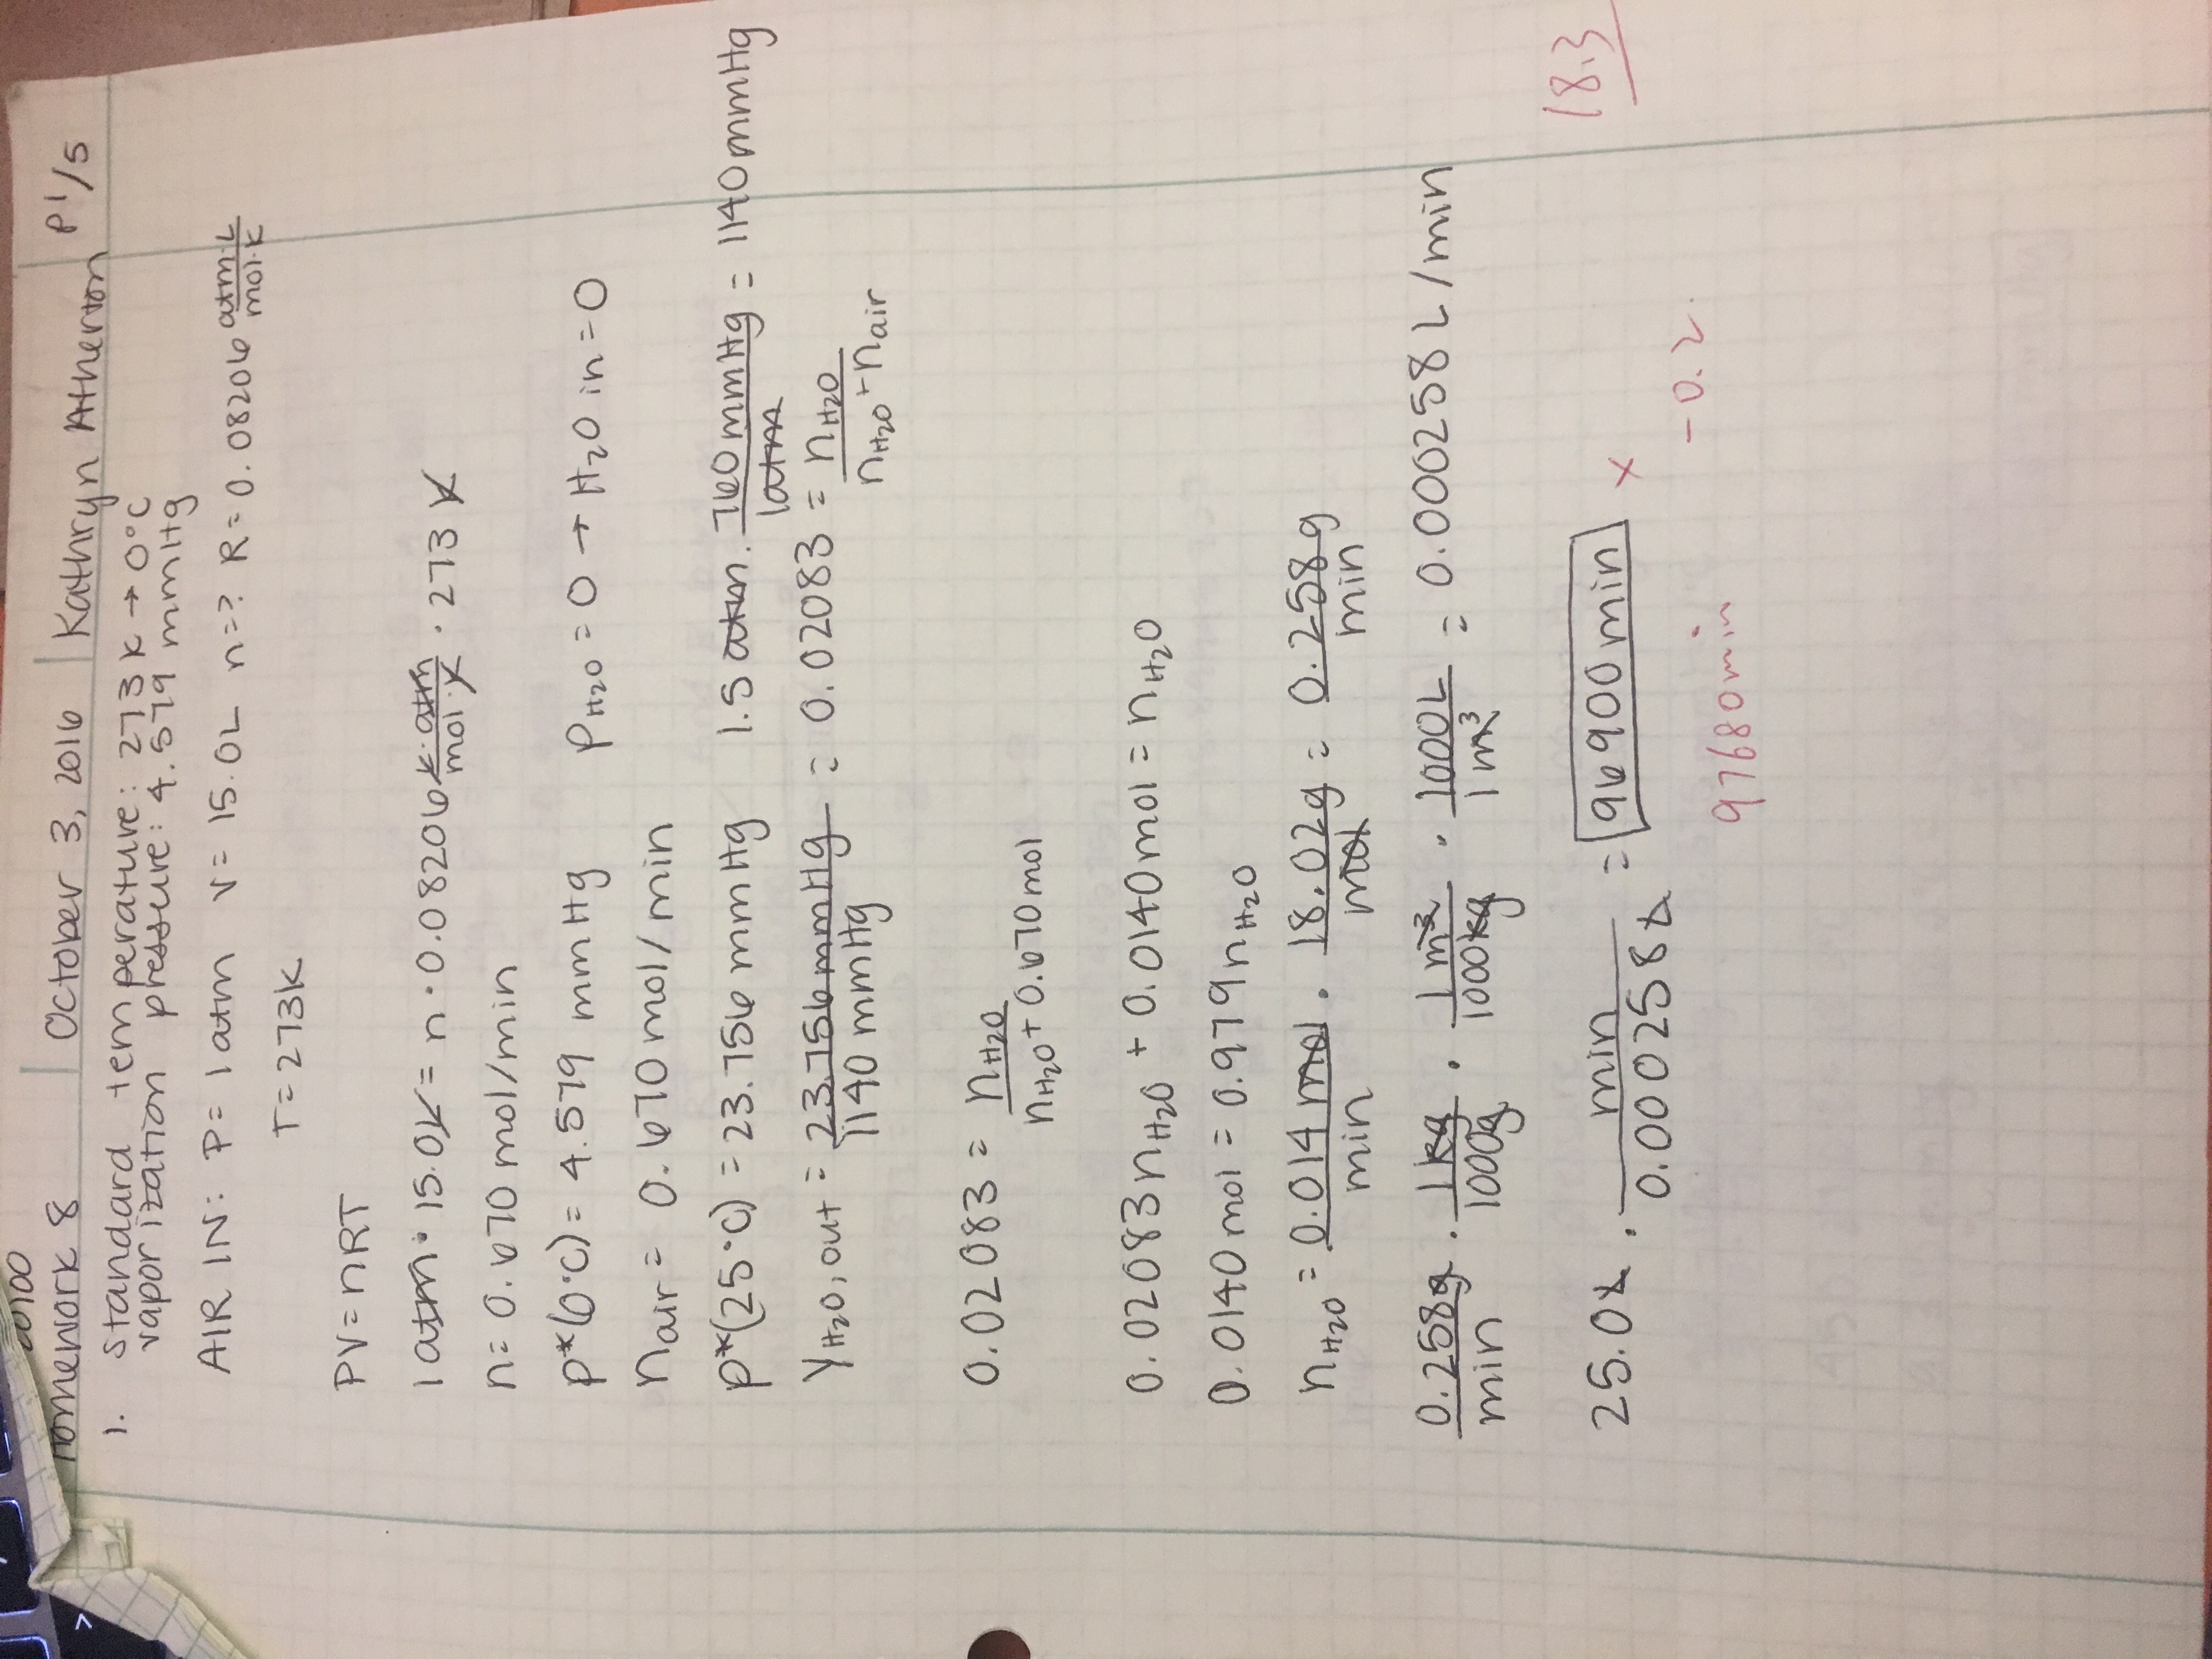 20100
Homework 8 | October 3, 2016 | Kathryn Atherton P 1/5
1. standard temperature: 273 K → 0°C
vaporization pressure: 4.579 mmHg
AIR IN: P = 1 atm V = 15.0L n = ? R = 0.08206 atm·L/mol·K
T = 273K
PV = nRT
1 atm · 15.0 L = n · 0.08206 L·atm/mol·K · 273 K
n = 0.670 mol/min
p*(0°C) = 4.579 mmHg PH2O = 0 → H2O in = 0
nair = 0.670 mol/min
p*(25°C) = 23.756 mmHg 1.5 atm · 760 mmHg/1 atm = 1140 mmHg
yH2O, out = 23.756 mmHg/1140 mmHg = 0.02083 = nH2O/nH2O + nair
0.02083 = nH2O/nH2O + 0.670 mol
0.02083 nH2O + 0.0140 mol = nH2O
0.0140 mol = 0.979 nH2O
nH2O = 0.014 mol/min · 18.02 g/mol = 0.258 g/min
0.258 g/min · 1 kg/1000 g · 1 m³/1000 kg · 1000 L/1 m³ = 0.000258 L/min
25.0 L · min/0.000258 L = 96900 min ×
18.3
-0.2.
97680 min